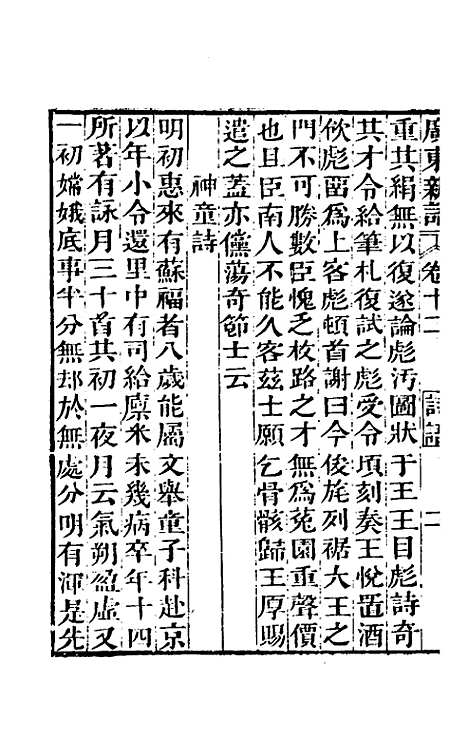 廣東新語 卷十二 詩語 二
重其絹無以復遂論彪汚圖狀于王王目彪詩奇
其才令給筆札復試之彪受令頃刻奏王悅置酒
飲彪留爲上客彪頓首謝曰今俊旄列裾大王之
門不可勝數臣愧乏枚路之才無爲菟園重聲價
也且臣南人不能久客茲土願乞骨骸歸王厚賜
遣之蓋亦儻蕩奇節士云
神童詩
明初惠來有蘇福者八歲能屬文舉童子科赴京
以年小令還里中有司給廩米未幾病卒年十四
所著有詠月三十首其初一夜月云氣朔盈虛又
一初嫦娥底事半分無却於無處分明有渾是先